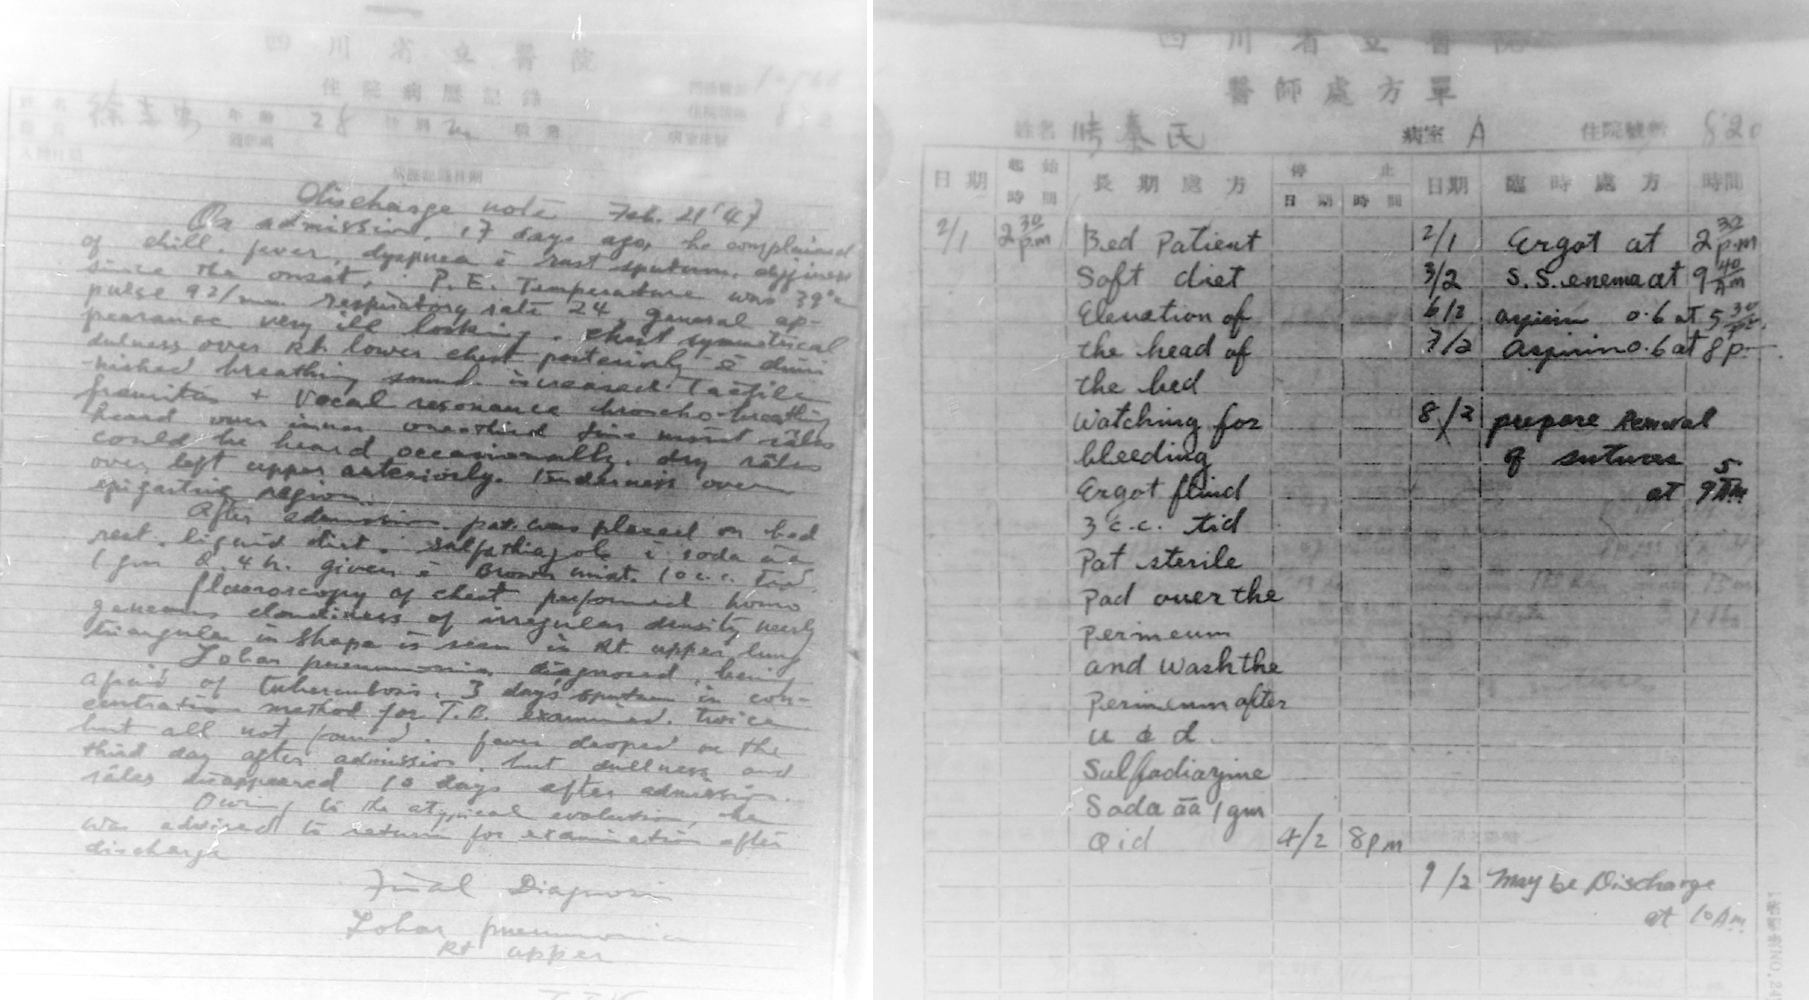 四川省立醫院
住院病歷記錄
姓名 徐 年齡 28 性別 m 職業
Discharge note Feb. 21 '47
On admission, 17 days ago, he complained
of chill, fever, dyspnea c̄ rust sputum,
since the onset, P. E. Temperature was 39°c
pulse 92/min. respiratory rate 24, general ap-
pearance very ill looking. chest symmetrical
dulness over Rt. lower chest posteriorly c̄ dimi
-nished breathing sound. increased tactile
fremitus + vocal resonance broncho-breathing
heard over inner fine moist râles
could be heard occasionally. dry râles
over left upper anteriorly. Tenderness over
epigastric region.
After admission pat. was placed on bed
rest. liquid diet. sulfathiazole c̄ soda āā
1 gm Q. 4 h. given c̄ Brown mixt. 10 c.c. tid.
fluoroscopy of chest performed homo
geneous cloudiness of irregular density nearly
triangular in shape is seen in Rt upper lung
Lobar pneumonia diagnosed, being
afraid of tuberculosis. 3 days sputum in con-
centration method for T.B. examined. twice
but all not found. fever droped on the
third day after admission. but dullness and
râles disappeared 10 days after admission.
Owing to the atypical evolution, he
was advised to return for examination after
discharge
Final Diagnosis
Lobar pneumonia
Rt upper
四川省立醫院
醫師處方單
姓名 秦民 病室 A 住院號數 820
日期 起始時間 長期處方 停止 日期 時間 日期 臨時處方 時間
2/1 2 30 p.m Bed Patient 2/1 Ergot at 2 32 p.m
Soft diet 3/2 S.S. enema at 9 40 Am
Elevation of 6/2 aspirin 0.6 at 5 30
the head of 7/2 Aspirin 0.6 at 8 p
the bed
Watching for 8/2 prepare Removal
bleeding of sutures
Ergot fluid at 9 5 Am
3 c.c. tid
Pat sterile
Pad over the
Perineum
and Wash the
Perineum after
u & d.
Sulfadiazine
Soda āā 1 gm
Qid 4/2 8 pm
9/2 May be Discharge
at 10 Am